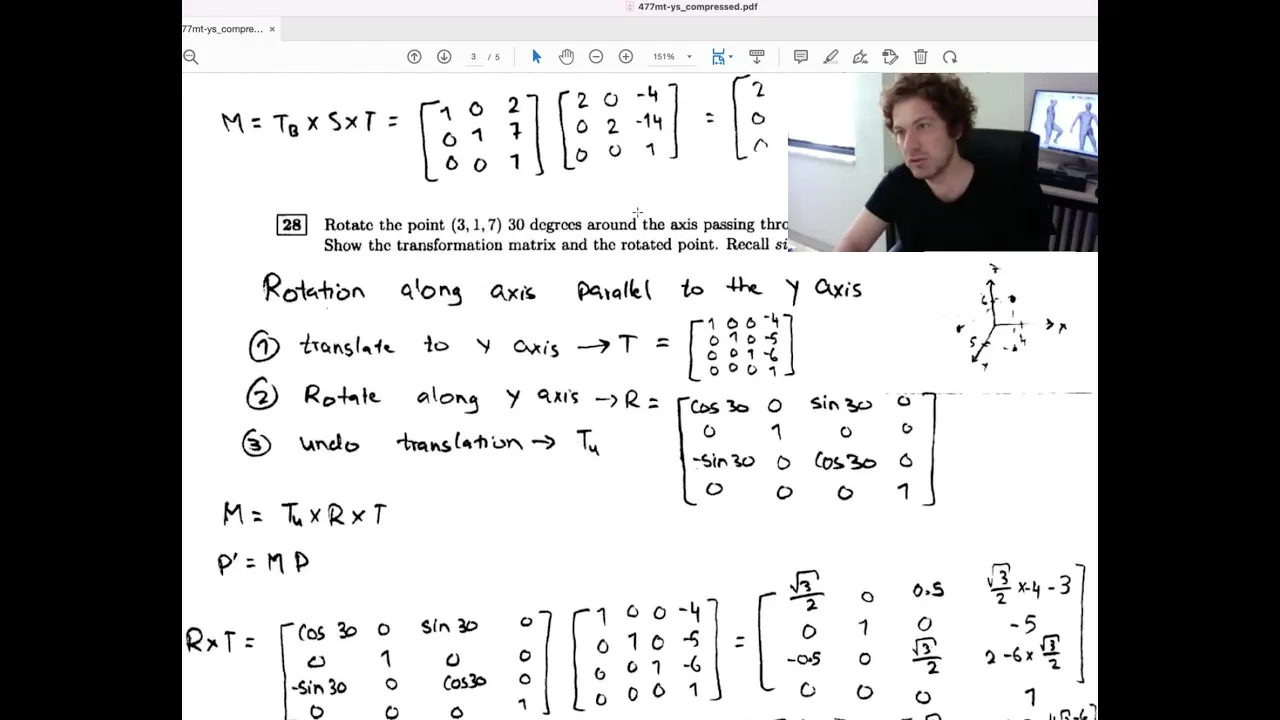 477mt-ys_compressed.pdf
477mt-ys_compre... ×
3 / 5 151%
M = T_B × S × T = [1 0 2] [2 0 -4] = [2
0 1 7 0 2 -14 0
0 0 1 0 0 1
28 Rotate the point (3, 1, 7) 30 degrees around the axis passing thro
Show the transformation matrix and the rotated point. Recall si
Rotation along axis parallel to the y axis
① translate to y axis → T = [1 0 0 -4]
0 1 0 -5
0 0 1 -6
0 0 0 1
② Rotate along y axis → R = [cos 30 0 sin 30 0]
0 1 0 0
-sin 30 0 cos 30 0
0 0 0 1
③ undo translation → Tu
z
6
x
4
5
y
M = Tu × R × T
P' = M P
R × T = [cos 30 0 sin 30 0] [1 0 0 -4] = [√3/2 0 0.5 √3/2 × -4 - 3]
0 1 0 0 0 1 0 -5 0 1 0 -5
-sin 30 0 cos 30 0 0 0 1 -6 -0.5 0 √3/2 2 - 6 × √3/2
0 0 0 1 0 0 0 1 0 0 0 1